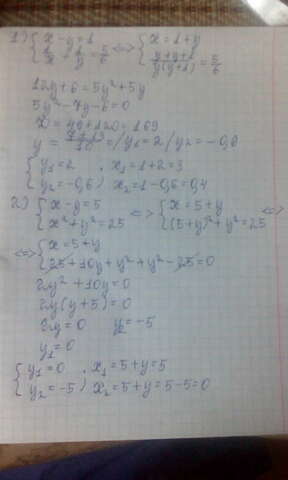 1) { x - y = 1 <=> { x = 1 + y
1/x + 1/y = 5/6 (y+y+1)/(y(y+1)) = 5/6
12y + 6 = 5y² + 5y
5y² - 7y - 6 = 0
D = 49 + 120 = 169
y = (7±13)/10 = / y₁ = 2 / y₂ = -0,6
{ y₁ = 2 , x₁ = 1+2 = 3
y₂ = -0,6 ) x₂ = 1-0,6 = 0,4
2) { x - y = 5 <=> { x = 5 + y <=>
x² + y² = 25 (5+y)² + y² = 25
<=> { x = 5 + y
25 + 10y + y² + y² - 25 = 0
2y² + 10y = 0
2y(y+5) = 0
2y = 0 y₂ = -5
y₁ = 0
{ y₁ = 0 , x₁ = 5 + y = 5
y₂ = -5 ) x₂ = 5 + y = 5 - 5 = 0